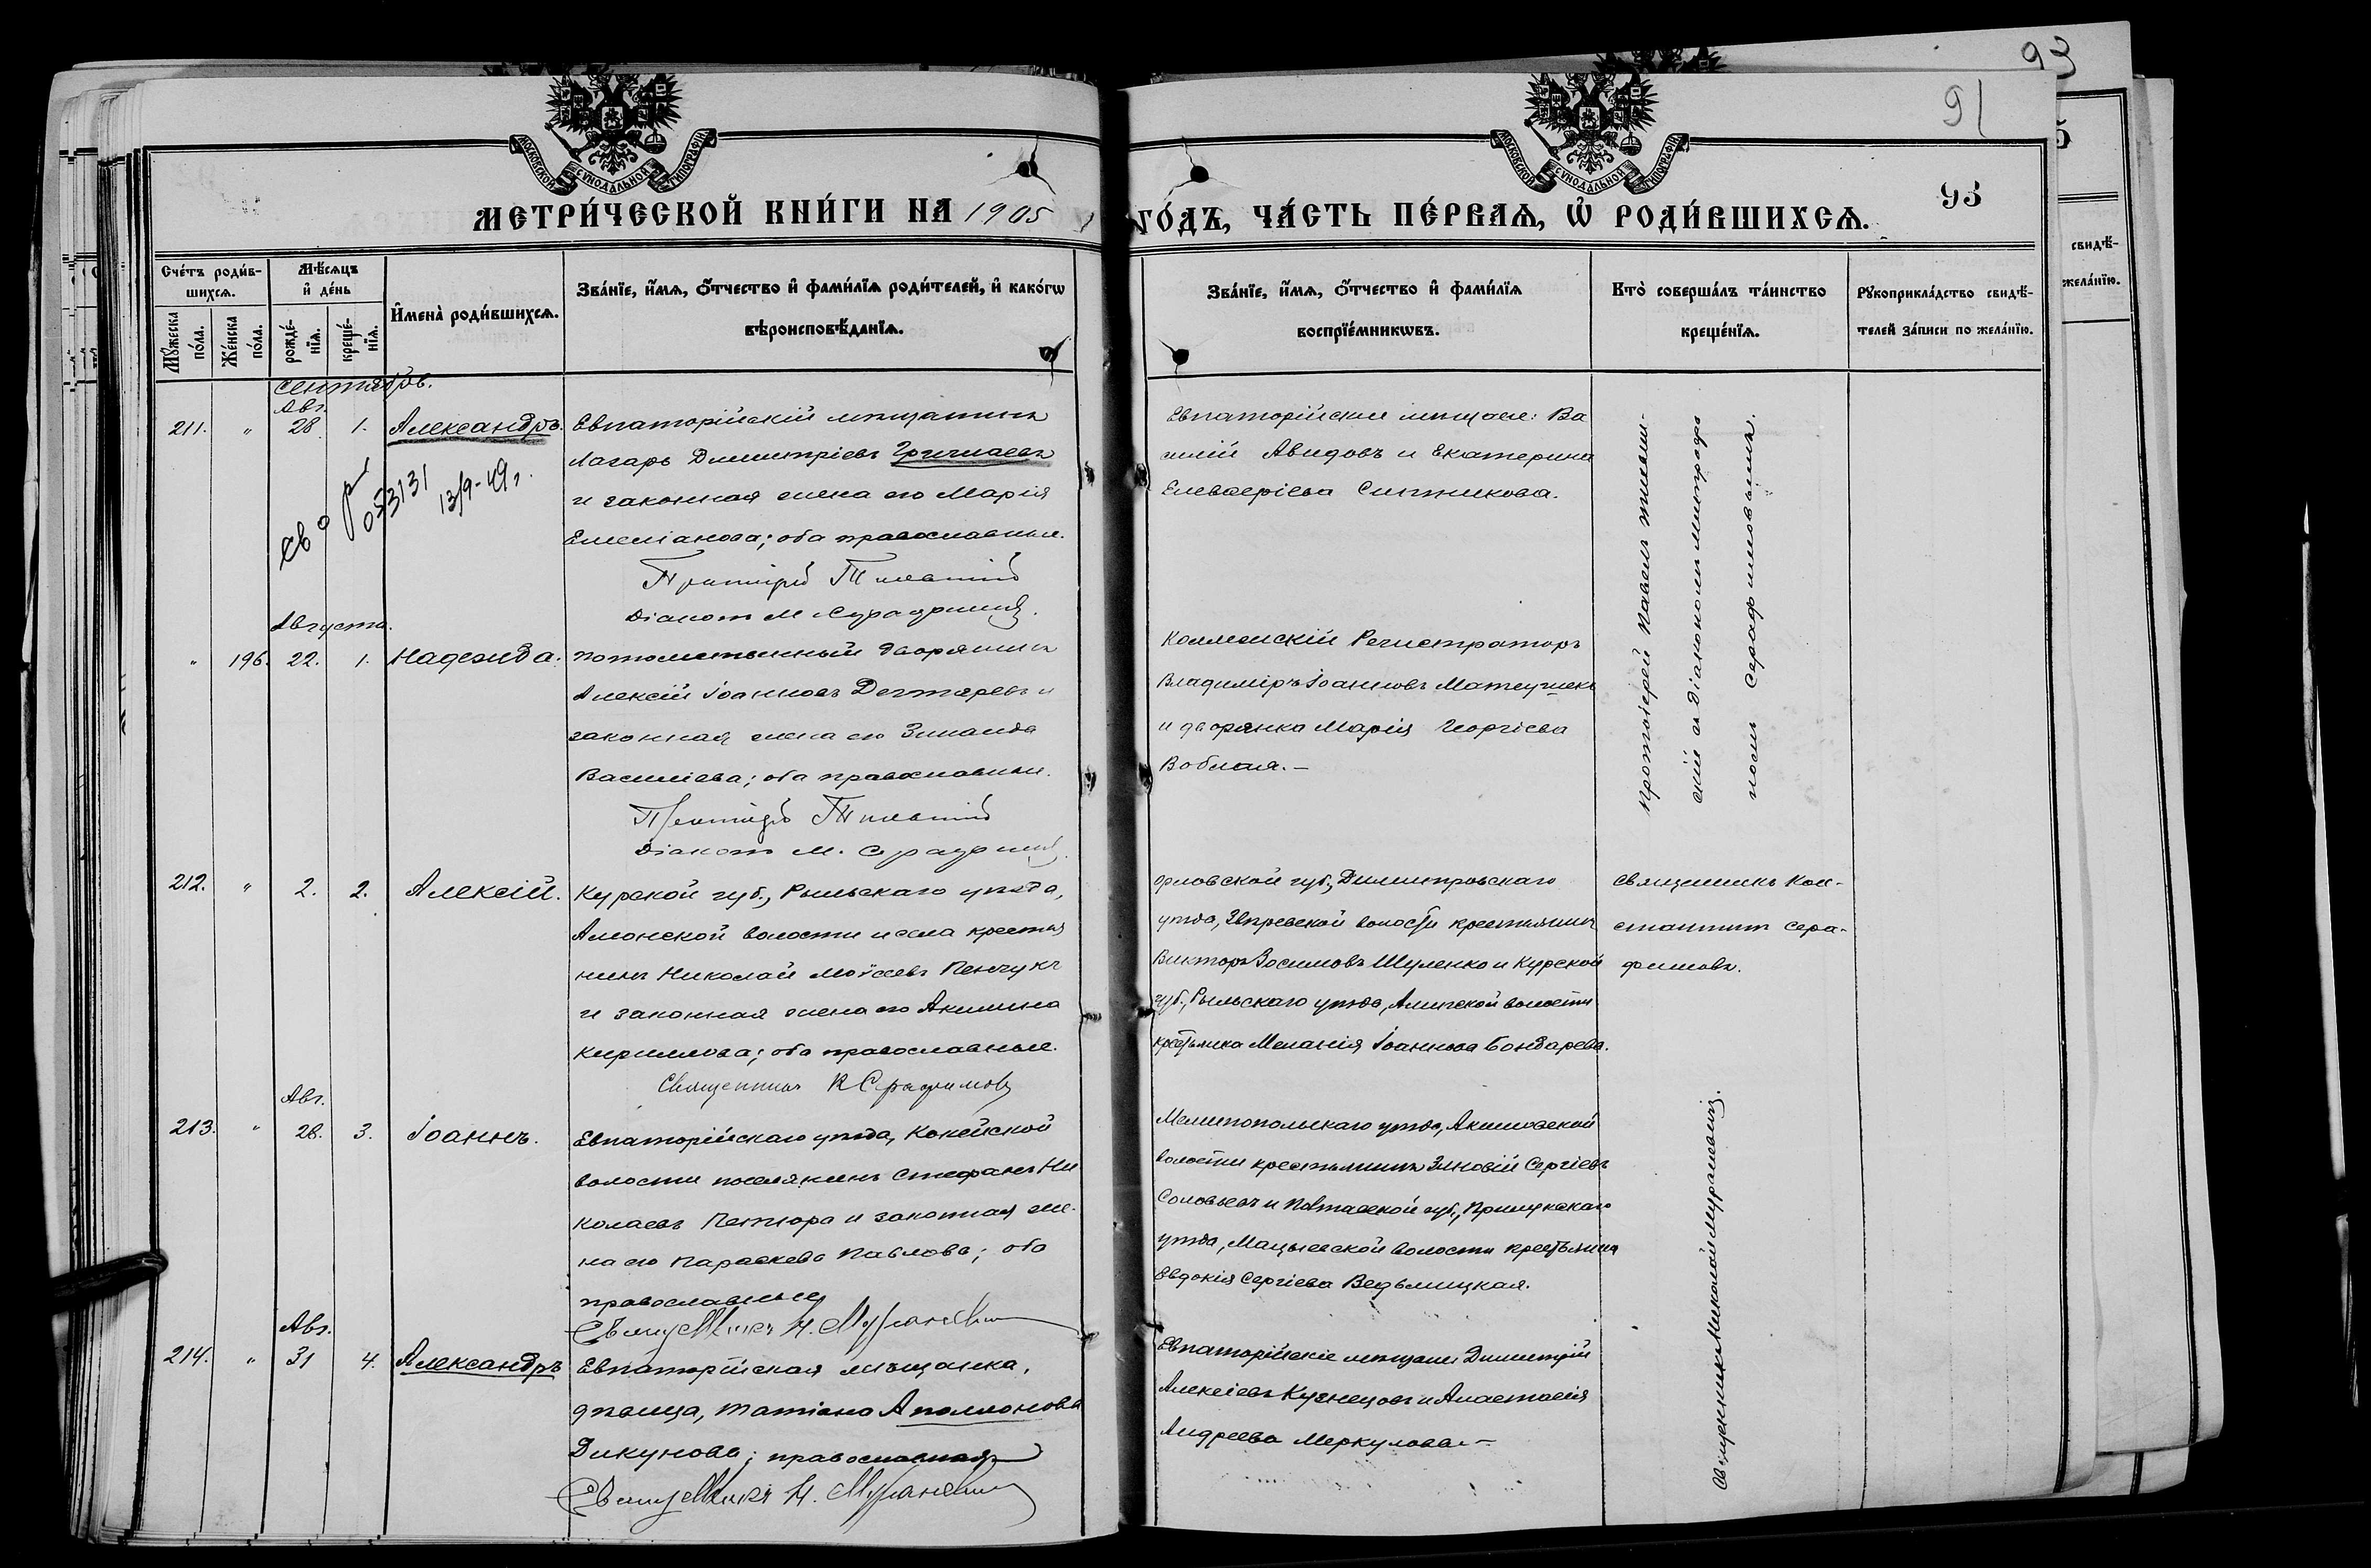 93
91
МОСКОВСКОЙ СУНОДАЛЬНОЙ ТИПОГРАФІИ
МОСКОВСКОЙ СУНОДАЛЬНОЙ ТИПОГРАФІИ
МЕТРИ́ЧЕСКОЙ КНИ́ГИ НА 1905
ГО́ДЪ, ЧА́СТЬ ПЕ́РВАѦ, Ѡ҆ РОДИ́ВШИХСѦ.
93
Сче́тъ роди́в-
шихсѧ.
Мѣ́сѧцъ
и҆ де́нь
Мꙋ́жеска
по́ла.
Же́нска
по́ла.
рожде́-
нїѧ.
креще́-
нїѧ.
И҆мена̀ роди́вшихсѧ.
Зва́нїе, и҆́мѧ, ѻ҆́тчество и҆ фами́лїѧ роди́телей, и҆ како́гѡ
вѣроисповѣ́данїѧ.
Зва́нїе, и҆́мѧ, ѻ҆́тчество и҆ фами́лїѧ
воспрїе́мникѡвъ.
Кто̀ соверша́лъ та́инство
креще́нїѧ.
Рꙋкоприкла́дство свидѣ́-
телей за́писи по жела́нїю.
свидѣ́-
жела́нїю.
Сентябрь.
Авг.
211. " 28. 1. Александръ.
Евпаторійскій мѣщанинъ
Лазарь Димитріевъ
и законная жена его Марія
Емеліанова; оба православные.
Протоіерей Тиховскій
Діаконъ М. Серафимовъ.
Св о р
053131
13/9-49 г.
Евпаторійскіе мѣщане: Ва
силій Авидовъ и Екатерина
Елевѳеріева Ситникова.
Протоіерей Павелъ
скій съ Діакономъ Митрофа
номъ Серафимовымъ.
Августа.
" 196. 22. 1. Надежда.
Потомственный дворянинъ
Алексій Іоанновъ Дегтяревъ и
законная жена его Зинаида
Василіева; оба православные.
Протоіерей
Діаконъ М. Серафимовъ.
Коллежскій Регистраторъ
Владиміръ Іоанновъ Матеушекъ
и дворянка Марія Георгіева
Воблая.—
212. " 2. 2. Алексій.
Курской губ., Рыльскаго уѣзда,
Амонской волости и села крестья
нинъ Николай Моѵсеевъ Пенчукъ
и законная жена его Акилина
Кириллова; оба православные.
Священникъ К Серафимовъ
Орловской губ., Димитровскаго
уѣзда, волости крестьянинъ
Викторъ Зосимовъ Шуленко и Курской
губ., Рыльскаго уѣзда, Амонской волости
крестьянка Меланія Іоаннова Бондарева.
Священникъ Кон-
стантинъ Сера-
фимовъ.
Авг.
213. " 28. 3. Іоаннъ.
Евпаторійскаго уѣзда, Кокейской
волости поселянинъ Стефанъ Ни
колаевъ и законная же-
на его Параскева Павлова; оба
православные
Священникъ Н. Мураневичъ
Мелитопольскаго уѣзда, Акимовской
волости крестьянинъ Зиновій Сергіевъ
Соловьевъ и Полтавской губ., Прилукскаго
уѣзда, Мацыевской волости крестьянка
Евдокія Сергіева Ведьмицкая.
Священникъ Николай Мураневичъ.
Авг.
214. " 31 4. Александръ
Евпаторійская мѣщанка,
дѣвица, Татіана Аполлонова
Дикунова; православная
Священникъ Н. Мураневичъ
Евпаторійскіе мѣщане Димитрій
Алексіевъ Кузнецовъ и Анастасія
Андреева Меркулова.—